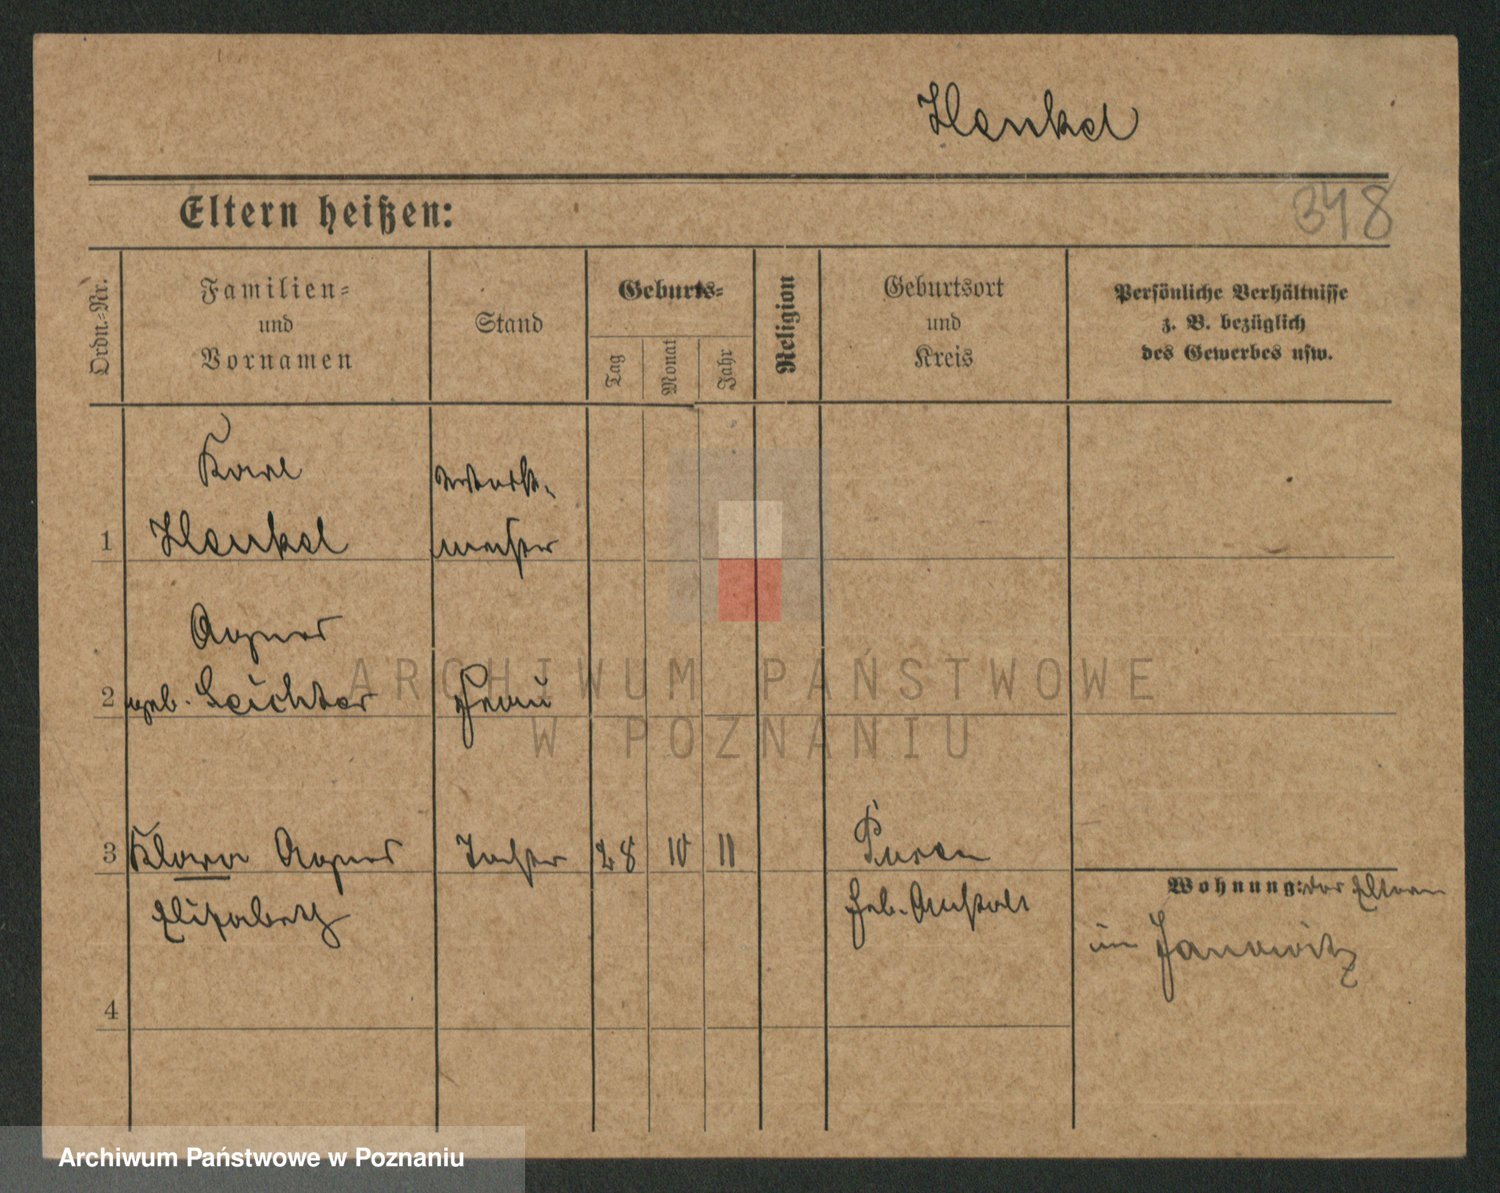 Henkel
348
Eltern heißen:
Ordn.=Nr.
Familien=
und
Vornamen
Stand
Geburts=
Tag
Monat
Jahr
Religion
Geburtsort
und
Kreis
Persönliche Verhältnisse
z. B. bezüglich
des Gewerbes usw.
1
Karl
Henkel
meister
2
Agnes
geb. Leichter
Frau
3
Klara Agnes
Elisabeth
Tochter
28 10 11
Posen
Geb. Anstalt
Wohnung: der Eltern
in Janowitz
4
ARCHIWUM PAŃSTWOWE
W POZNANIU
Archiwum Państwowe w Poznaniu